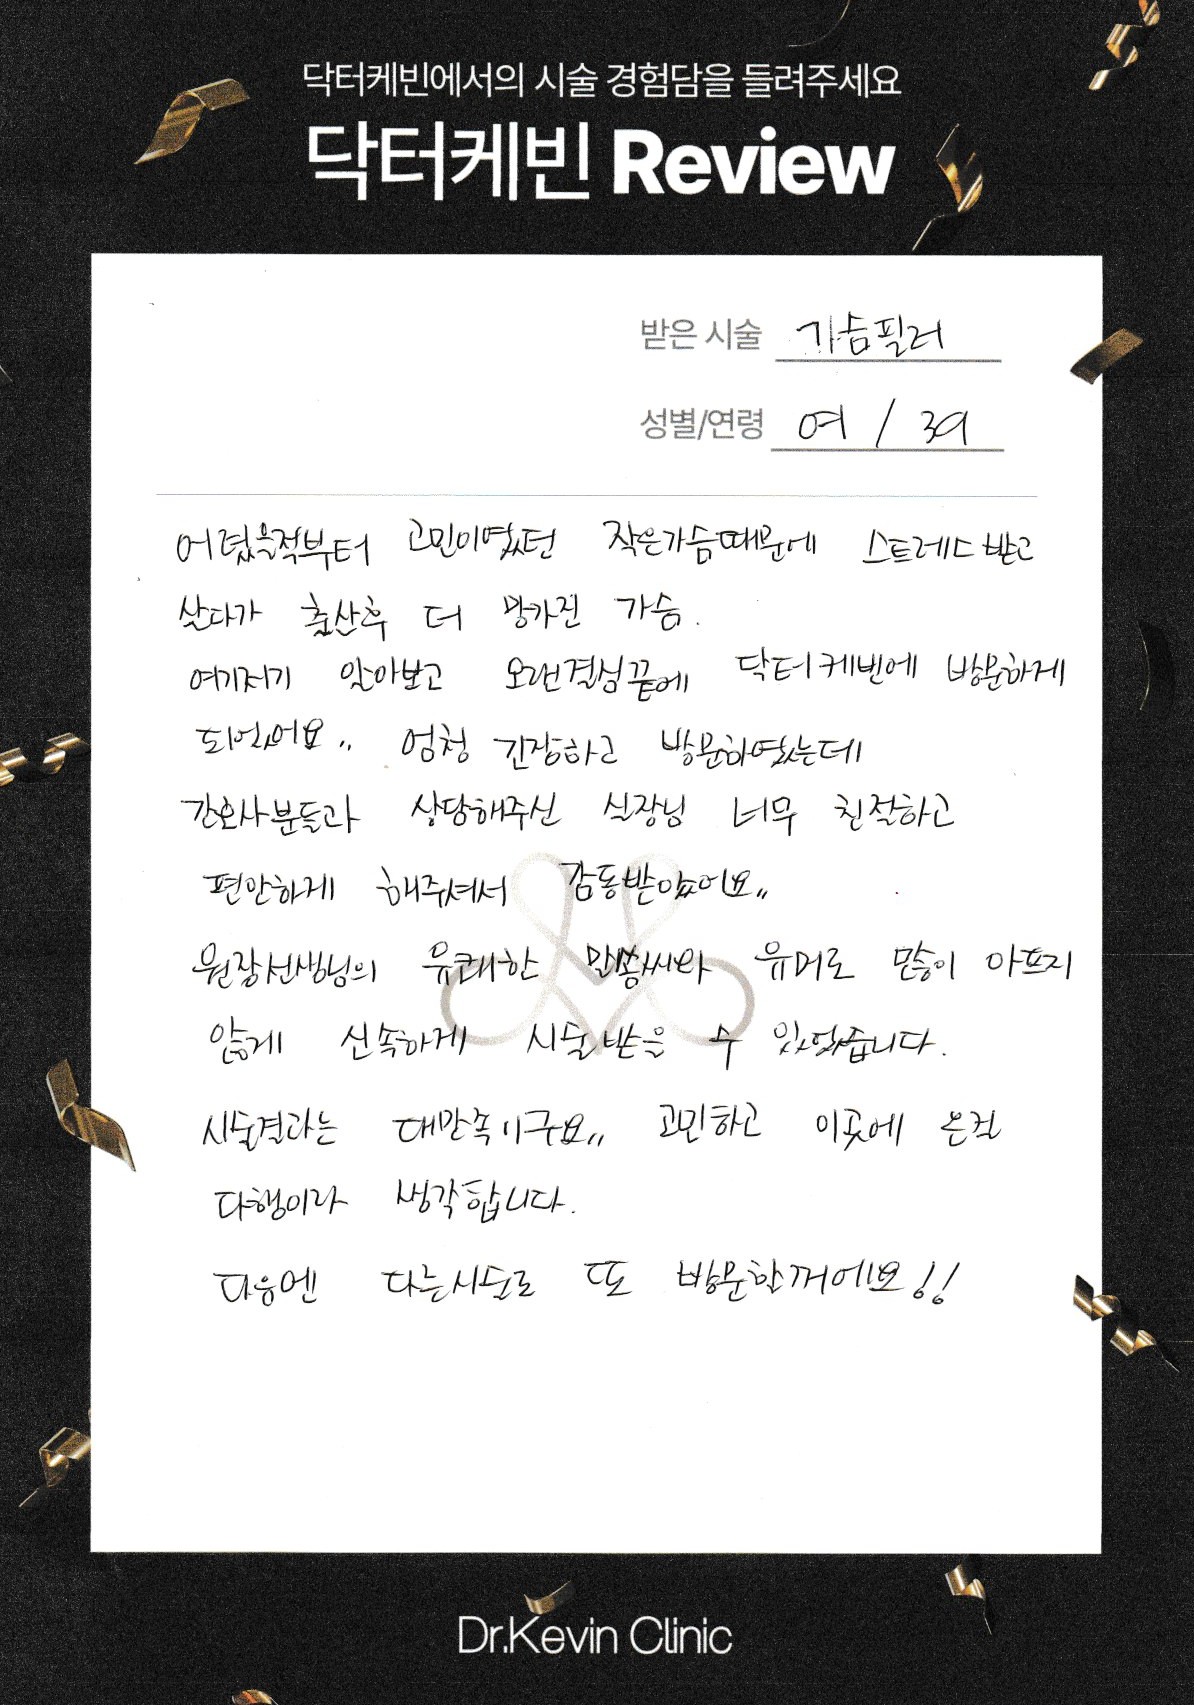 닥터케빈에서의 시술 경험담을 들려주세요
닥터케빈 Review
받은 시술 가슴필러
성별/연령 여 / 39
어렸을적부터 고민이였던 작은가슴때문에 스트레스받고
살다가 출산후 더 망가진 가슴.
여기저기 알아보고 오랜결심끝에 닥터케빈에 방문하게
되었어요.. 엄청 긴장하고 방문하였는데
간호사분들과 상담해주신 실장님 너무 친절하고
편안하게 해주셔서 감동받았어요..
원장선생님의 유쾌한 말씀씨와 유머로 많이 아프지
않게 신속하게 시술받을 수 있었습니다.
시술결과는 대만족이구요.. 고민하고 이곳에 온건
다행이라 생각합니다.
다음엔 다른시술로 또 방문할꺼에요!!
Dr.Kevin Clinic